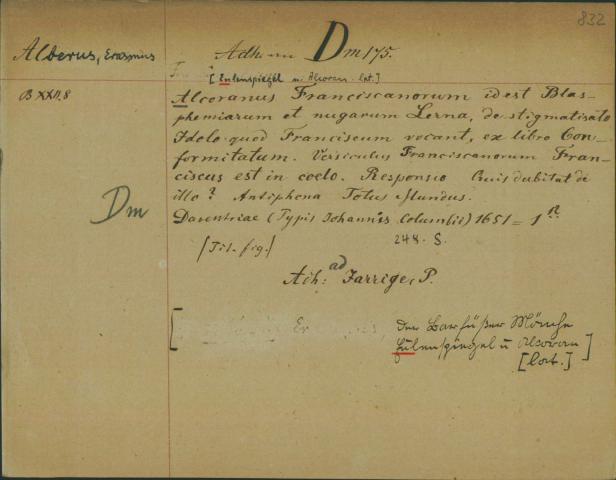 832
Alberus, Erasmus
Adh. un Dm 175.
[Eulenspiegel u. Alcoran. lat.]
B XXII, 8
Alcoranus Franciscanorum id est Blas-
phemiarum et nugarum Lerna, de stigmatisato
Idolo quod Franciscum vocant, ex libro Con-
formitatum. Versiculus Franciscanorum Fran-
ciscus est in coelo. Responsio Quis dubitat de
illo? Antiphona Totus Mundus.
Dm
Daventriae (Typis Johannis Columbii) 1651 =
248. S.
[Tit. fig.]
Adh: ad Jarrige, P.
[ Der Barfüßer Mönche
Eulenspiegel u Alcoran ]
[lat.]